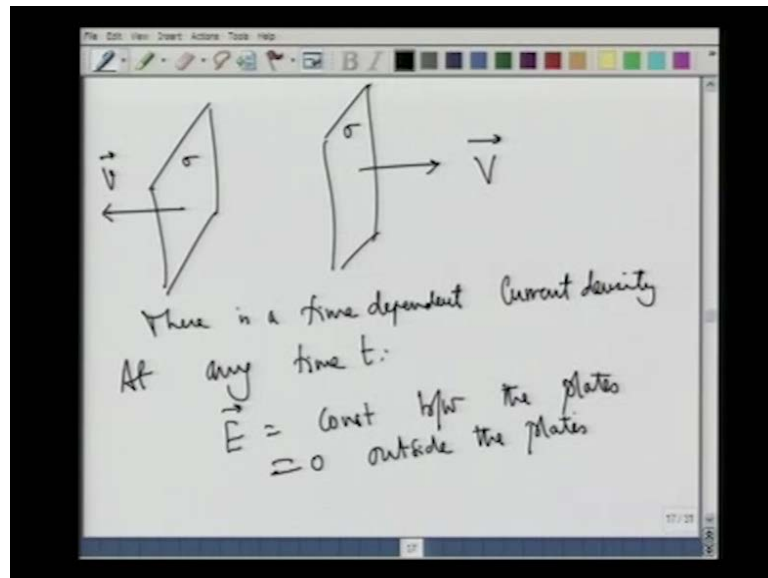 File Edit View Insert Actions Tools Help
B I
σ
σ
V
V
There is a time dependent Current density
At any time t:
E = Const b/w the plates
= 0 outside the plates
17/31
17